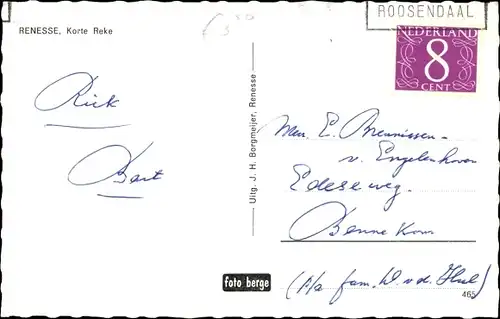 ROOSENDAAL
RENESSE, Korte Reke
NEDERLAND
8
CENT
Rick
Bart
Uitg. J. H. Borgmeijer, Renesse
Mevr. E. Meunissen-
v. Engelenhoven
Edeseweg.
Bennekom
(p/a fam. W. v. d. Hul)
foto berge
465